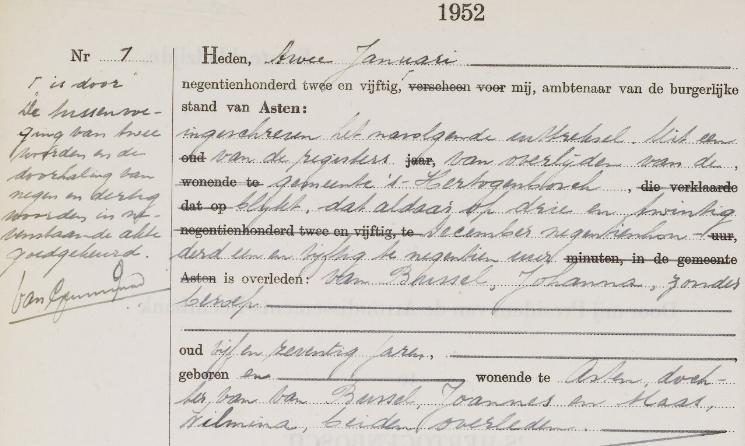 1952
Nr 1
is door
De tussenvoe-
ging van twee
woorden en de
doorhaling van
negen en dertig
woorden in ne-
venstaande akte
goedgekeurd.
Heden, twee Januari
negentienhonderd twee en vijftig, verscheen voor mij, ambtenaar van de burgerlijke
stand van Asten:
ingeschreven het navolgende uittreksel. Uit een
oud van de registers jaar, van overlijden van de,
wonende te gemeente 's-Hertogenbosch, die verklaarde
dat op blijkt, dat aldaar op drie en twintig
negentienhonderd twee en vijftig, te December negentienhon- uur,
derd een en vijftig te negentien uur minuten, in de gemeente
Asten is overleden: van Bussel, Johanna, zonder
beroep
oud vijf en zeventig jaren,
geboren en wonende te Asten, doch-
ter van van Bussel, Joannes en Maas,
Wilmina, beiden overleden.